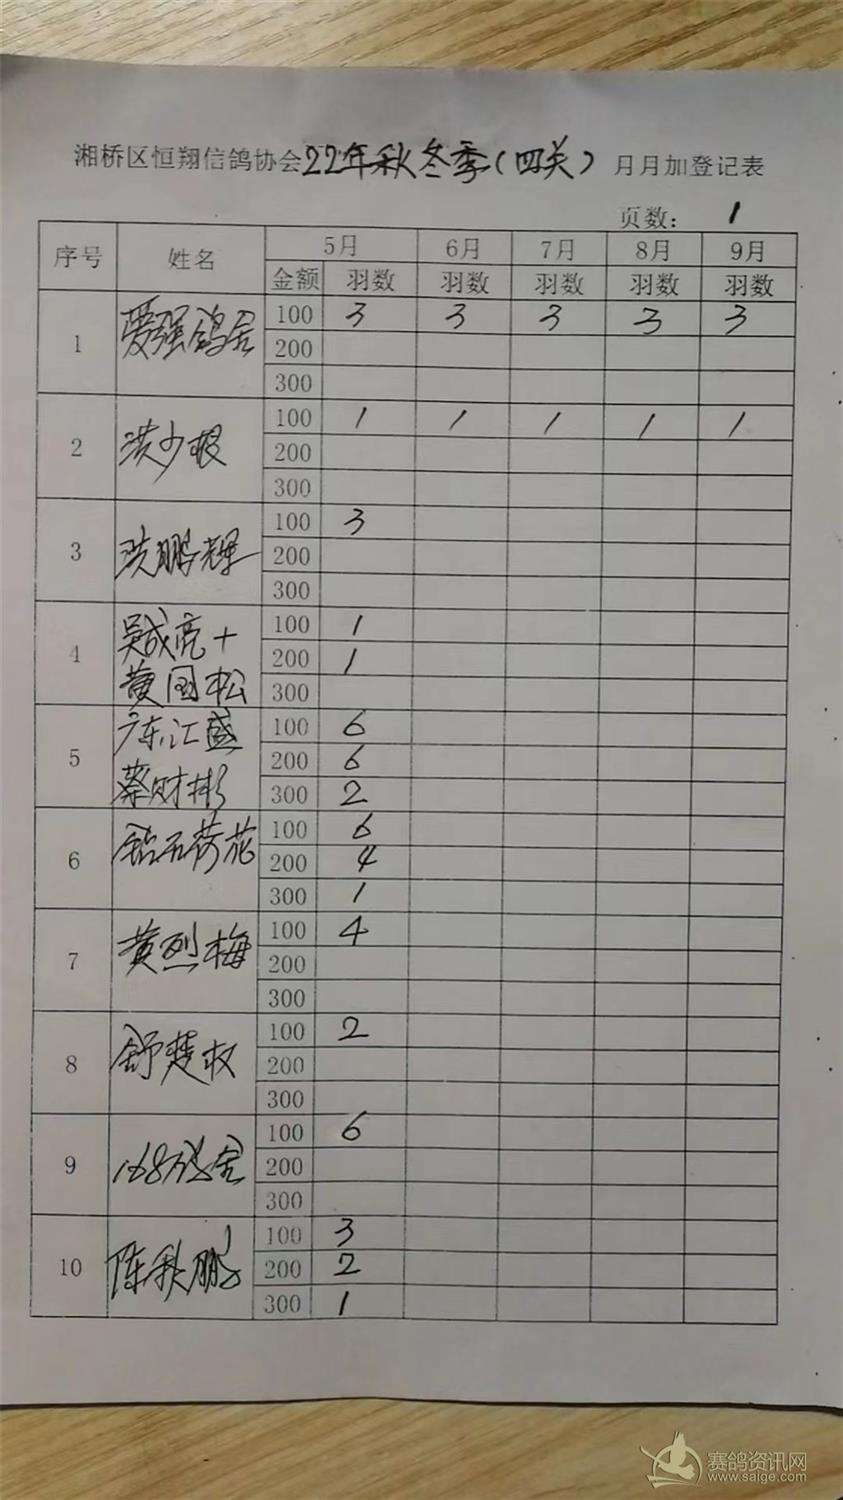 湘桥区恒翔信鸽协会22年秋冬季(四关)月月加登记表
页数: 1
序号 姓名 5月 6月 7月 8月 9月
金额 羽数 羽数 羽数 羽数 羽数
1 爱强鸽舍 100 3 3 3 3 3
200
300
2 洪少根 100 1 1 1 1 1
200
300
3 洪鹏辉 100 3
200
300
4 吴成亮+ 100 1
黄国松 200 1
300
5 广东汇盛 100 6
蔡财彬 200 6
300 2
6 钻石荷花 100 6
200 4
300 1
7 黄烈梅 100 4
200
300
8 舒楚权 100 2
200
300
9 168鸽舍 100 6
200
300
10 陈秋鹏 100 3
200 2
300 1
赛鸽资讯网
www.saige.com